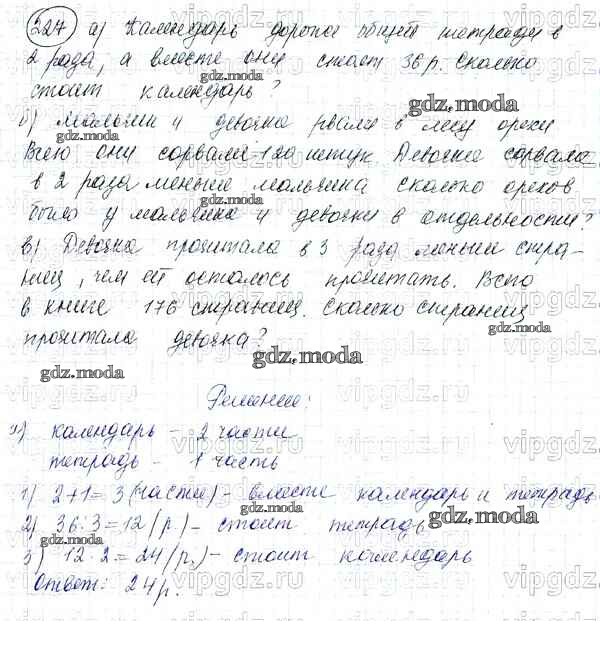 227 а) Календарь дороже общей тетради в
2 раза, а вместе они стоят 36 р. Сколько
стоит календарь?
б) Мальчик и девочка рвали в лесу орехи
Всего они сорвали 120 штук. Девочка сорвала
в 2 раза меньше мальчика сколько орехов
было у мальчика и девочки в отдельности?
в) Девочка прочитала в 3 раза меньше стра-
ниц, чем ей осталось прочитать. Всего
в книге 176 страниц. Сколько страниц
прочитала девочка?
Решение:
а) календарь - 2 части
тетрадь - 1 часть
1) 2+1=3 (части) - вместе календарь и тетрадь
2) 36:3=12 (р.) - стоит тетрадь
3) 12·2=24 (р.) - стоит календарь
Ответ: 24 р.
gdz.moda
vipgdz.ru